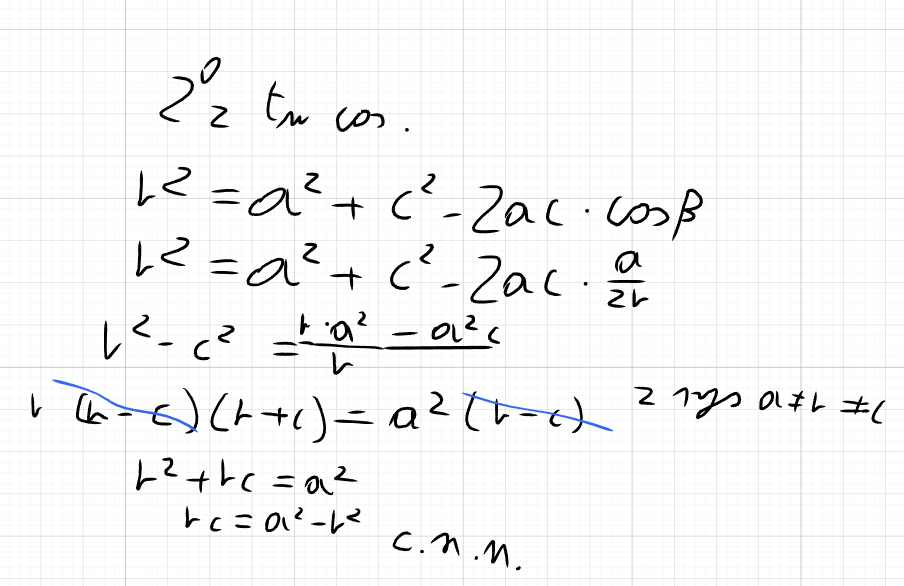 2° z tw cos.
b² = a² + c² - 2ac · cosβ
b² = a² + c² - 2ac · a/2b
b² - c² = (b·a² - a²c)/b
b (b-c)(b+c) = a² (b-c) z rys a≠b≠c
b² + bc = a²
bc = a² - b²
c.n.n.